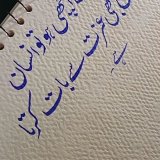 اچھی ہو تو انسان
بھی عزت سے بات کرتا
ہے۔